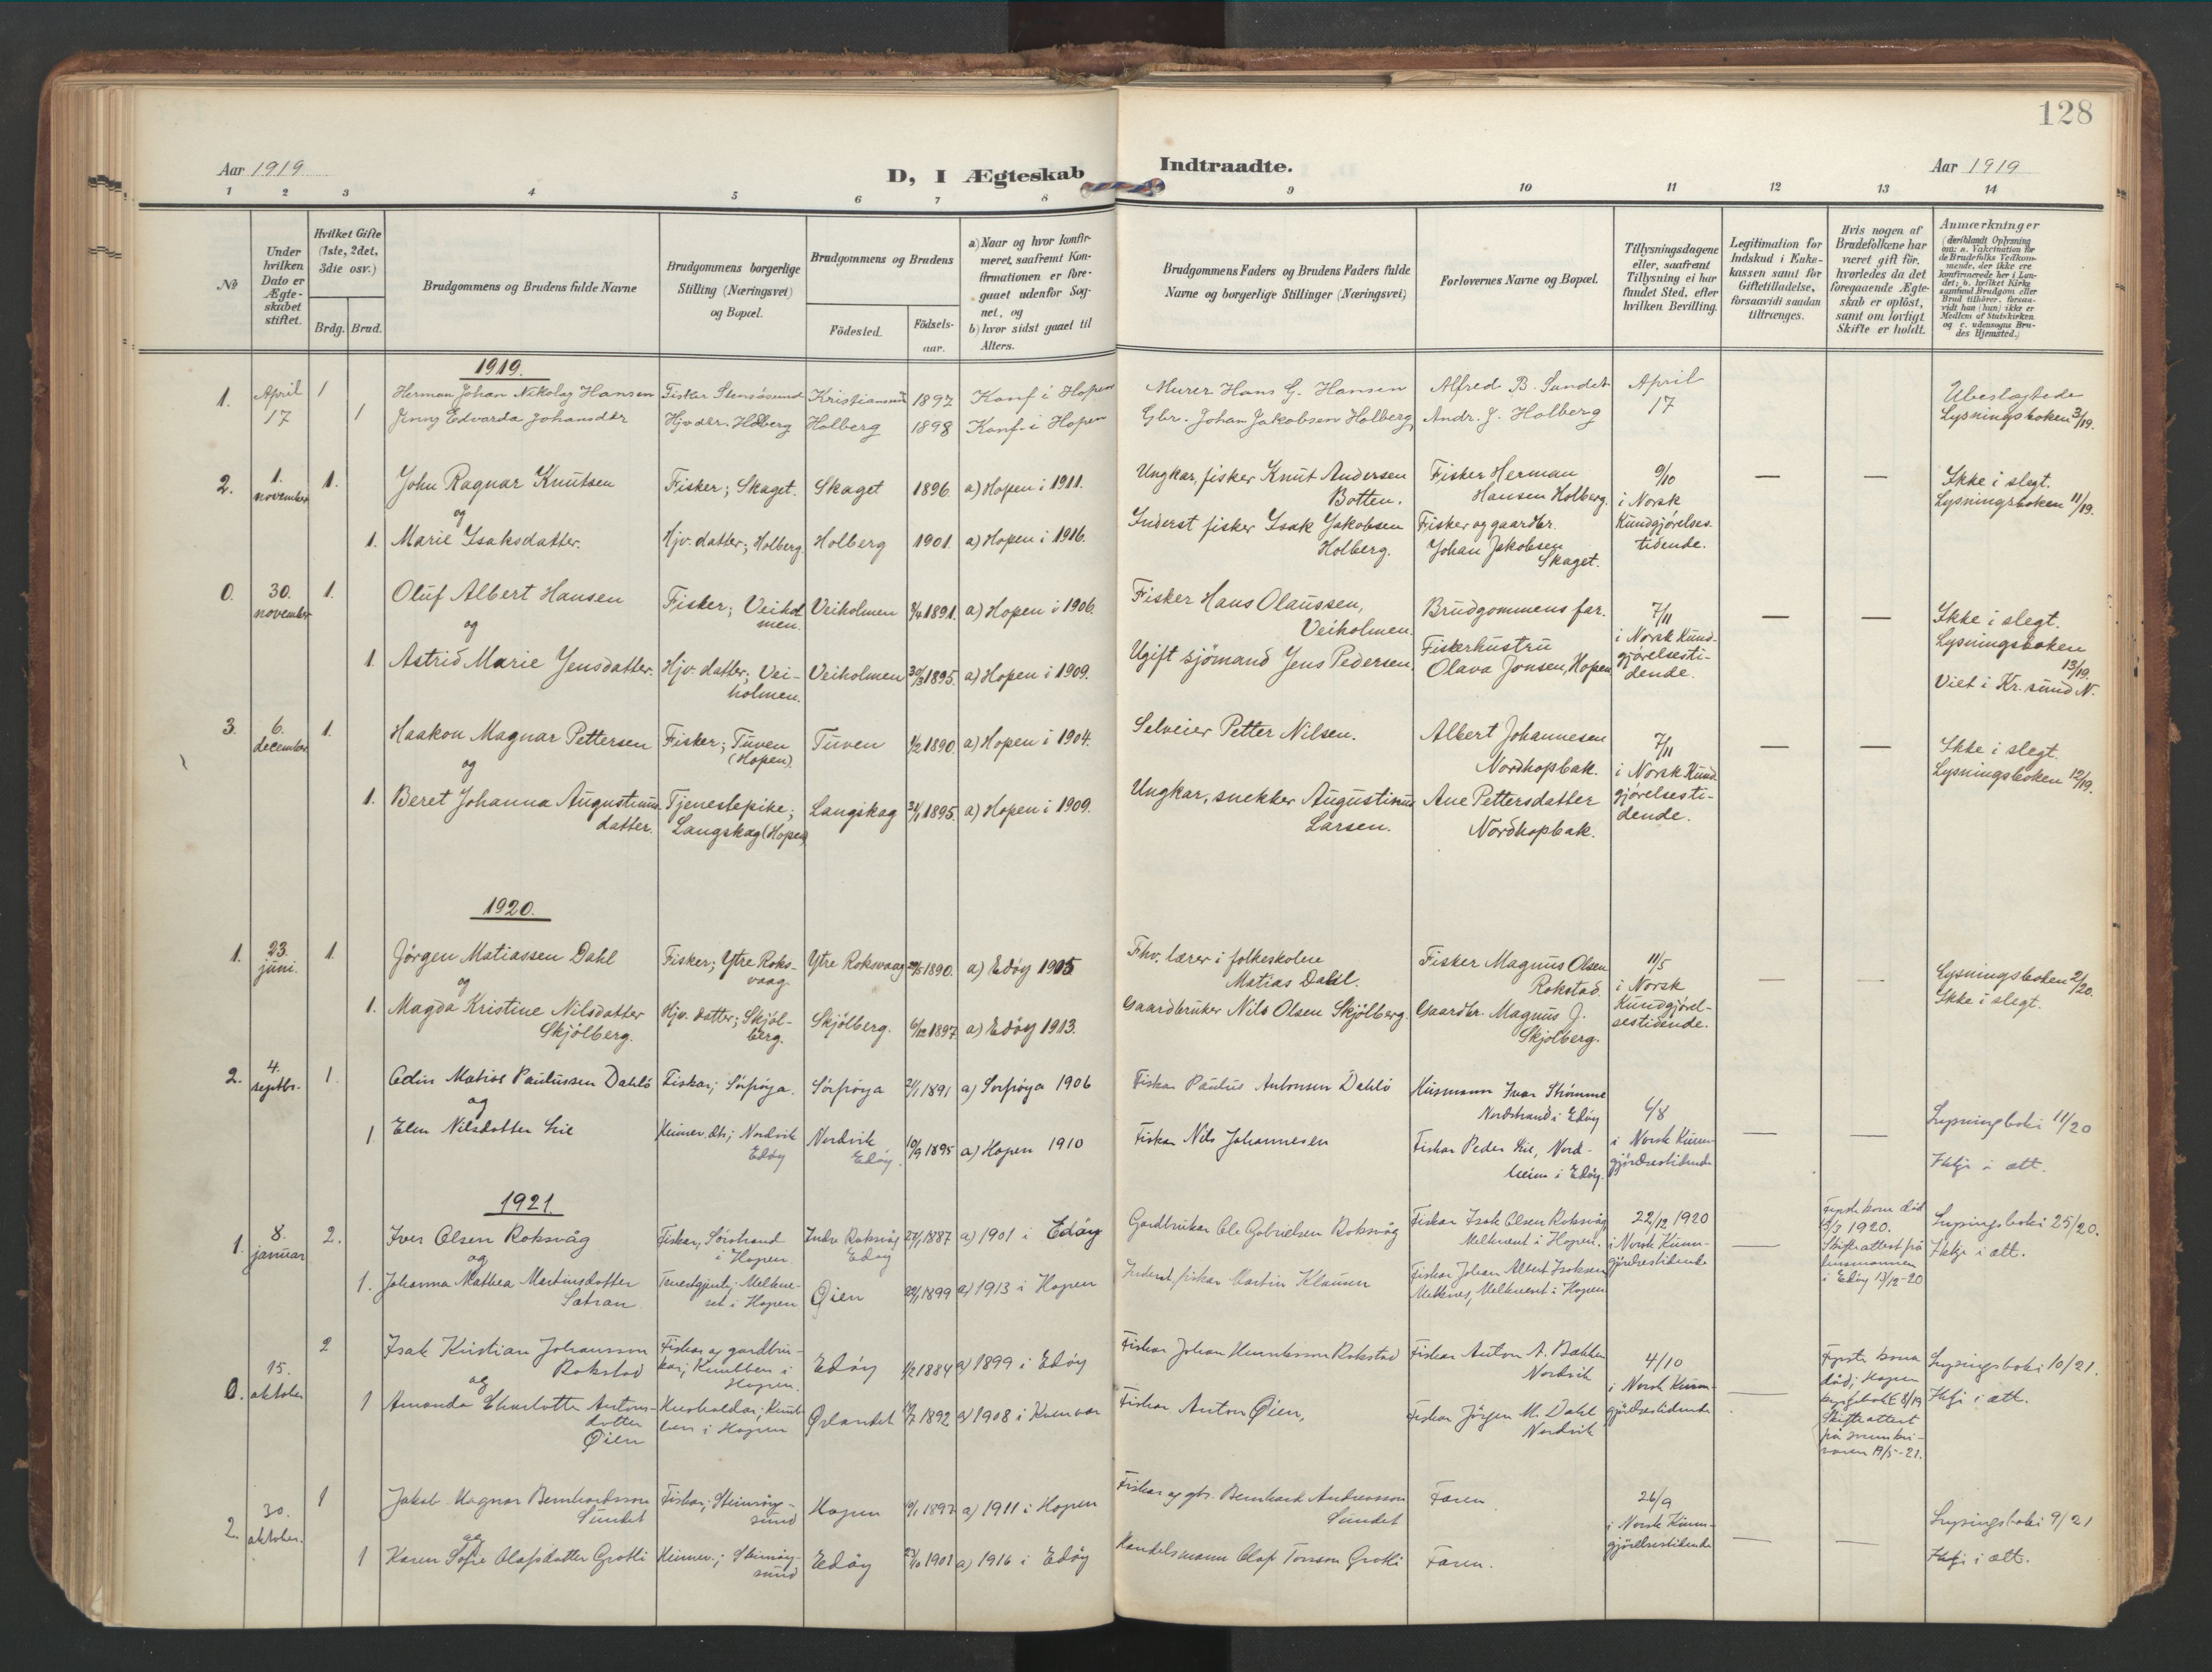 128
Aar 1919
D, I Ægteskab Indtraadte.
Aar 1919
1 2 3 4 5 6 7 8 9 10 11 12 13 14
No
Under hvilken Dato er Ægte-skabet stiftet.
Hvilket Gifte (1ste, 2det, 3die osv.)
Brdg. Brud.
Brudgommens og Brudens fulde Navne
Brudgommens borgerlige Stilling (Næringsvei) og Bopæl.
Brudgommens og Brudens
Födested.
Födsels-aar.
a) Naar og hvor konfir-meret, saafremt Kon-firmationen er fore-gaaet udenfor Sog-net, og
b) hvor sidst gaaet til Alters.
Brudgommens Faders og Brudens Faders fulde Navne og borgerlige Stillinger (Næringsvei)
Forlovernes Navne og Bopæl.
Tillysningsdagene eller, saafremt Tillysning ei har fundet Sted, efter hvilken Bevilling.
Legitimation for Indskud i Enke-kassen samt for Giftetilladelse, forsaavidt saadan tiltrænges.
Hvis nogen af Brudefolkene har været gift för, hvorledes da det foregaaende Ægte-skab er oplöst, samt om lovligt Skifte er holdt.
Anmærkninger
(deriblandt Oplysning om: a. Vakcination for de Brudefolks Vedkom-mende, der ikke ere konfirmerede her i Lan-det; b. hvilket Kirke-samfund Brudgom eller Brud tilhörer, forsaa-vidt han (hun) ikke er Medlem af Statskirken og c. udensogns Bru-des Hjemsted.)
1919.
1. April 17 1 Herman Johan Nikolay Hansen Fisker Stensösund Kristiansund 1897 Konf i Hopen Murer Hans G. Hansen Alfred B. Sundet April 17 Ubeslægtede
1 Jenny Edvarda Johansdtr Hjv. dtr. Holberg Holberg 1898 Konf. i Hopen Gbr. Johan Jakobsen Holberg, Andr. J. Holberg Lysningsboken 3/19.
2. 1. november 1. John Ragnar Knutsen Fisker; Skaget. Skaget 1896. a) Hopen i 1911. Ungkar, fisker Knut Andersen Botten. Fisker Herman Hansen Holberg. 9/10 i Norsk Kundgjörelses-tidende. — — Ikke i slegt. Lysningsboken 11/19.
og
1. Marie Isaksdatter. Hjv. datter; Holberg Holberg 1901. a) Hopen i 1916. Inderst fisker Isak Jakobsen Holberg. Fisker og gaardbr. Johan Jakobsen Skaget.
0. 30. november 1. Oluf Albert Hansen Fisker; Veihol-men. Veiholmen 1891. a) Hopen i 1906. Fisker Hans Olaussen, Veiholmen. Brudgommens far. 7/11 i Norsk Kund-gjörelsesti-dende. — — Ikke i slegt. Lysningsboken 13/19. Viet i Kr. sund N.
og
1. Astrid Marie Jensdatter. Hjv. datter; Vei-holmen. Veiholmen 30/3 1895. a) Hopen i 1909. Ugift sjömand Jens Pedersen. Fiskerhustru Olava Jonsen, Hopen
3. 6. december 1. Haakon Magnar Pettersen Fisker; Tuven (Hopen). Tuven 1/2 1890. a) Hopen i 1904. Selveier Petter Nilsen. Albert Johannesen Nordhopbak. 7/11 i Norsk Kund-gjörelsesti-dende. — — Ikke i slegt. Lysningsboken 12/19.
og
1. Beret Johanna Augustinus-datter. Tjenestepike; Langskag (Hopen) Langskag 1895. a) Hopen i 1909. Ungkar, snekker Augustinus Larsen. Ane Pettersdatter Nordhopbak.
1920.
1. 23. juni. 1. Jörgen Matiassen Dahl Fisker; Ytre Roks-vaag. Ytre Roksvaag 1890. a) Edöy 1905 Fhv. lærer i folkeskolene Matias Dahl. Fisker Magnus Olsen Rokstad. 11/5 i Norsk Kundgjörel-sestidende. — — Lysningsboken 2/20. Ikke i slegt.
og
1. Magda Kristine Nilsdatter Skjölberg. Hjv. datter; Skjöl-berg. Skjölberg. 6/12 1897. a) Edöy 1913. Gaardbruker Nils Olsen Skjölberg. Gaardbr. Magnus J. Skjölberg.
2. 4. septbr. 1. Edin Matias Paulussen Dahlö Fiskar; Sörfröya. Sörfröya 1891 a) Sörfröya 1906 Fiskar Paulus Antonsen Dahlö Husmann Ivar Strömme Nordstrand i Edöy 6/8 i Norsk Kunn-gjördsestidende — — Lysningboki 11/20 Ikkje i ætt.
og
1 Elen Nilsdotter Lie Heimev. dtr; Nordvik Edöy Nordvik Edöy. 10/9 1895 a) Hopen 1910 Fiskar Nils Johannesen Fiskar Peder Lie, Nord-heim i Edöy.
1921.
1. 8. januar 2. Iver Olsen Roksvåg Fiskar, Sörstrand i Hopen Indre Roksvåg Edöy 1887 a) 1901 i Edöy Gardbrukar Ole Gabrielsen Roksvåg Fiskar Isak Olsen Roksvåg Melkvent i Hopen. 22/12 1920 i Norsk Kunn-gjördsestidende — Fyrste kone död 1920. Skifteattest frå lensmannen i Edöy 13/12-20 Lysingsboki 25/20. Ikkje i ætt.
og
1. Johanna Mathea Martinsdotter Sætran Tenestgjente; Melkve-net i Hopen Öien 1899 a) 1913 i Hopen Inderst, fiskar Martin Klausen Fiskar Johan Albert Isaksen Melknes, Melkvent i Hopen
0. 15. oktober 2 Isak Kristian Johansson Rokstad Fiskar og gardbru-kar; Knubben i Hopen. Edöy 1/2 1884 a) 1899 i Edöy Fiskar Johan Henriksson Rokstad Fiskar Anton A. Dahlen Nordvik 4/10 i Norsk Kunn-gjördsestidende — Fyrste kona död; Hopen Skifteattest 19/5-21. Lysingsboki 10/21. Ikkje i ætt.
og
1 Amanda Charlotte Antons-dotter Öien Hushaldar; Knub-ben i Hopen Örlandet 1892 a) 1908 i Kvenvær Fiskar Anton Öien, Fiskar Jörgen M. Dahl Nordvik
2. 30. oktober. 1 Jakob Magnar Bernhardsson Sundet Fiskar; Steinsöy-sund Hopen 1897 a) 1911 i Hopen Fiskar og gbr. Bernhard Andreasson Sundet Faren 26/9 i Norsk Kunn-gjördsestidende — — Lysingsboki 9/21 Ikkje i ætt.
og
1 Karen Sofie Olafsdotter Grotli Heimev.; Steinsöy-sund Edöy 1901 a) 1916 i Edöy Handelsmann Olaf Torsson Grotli Faren.